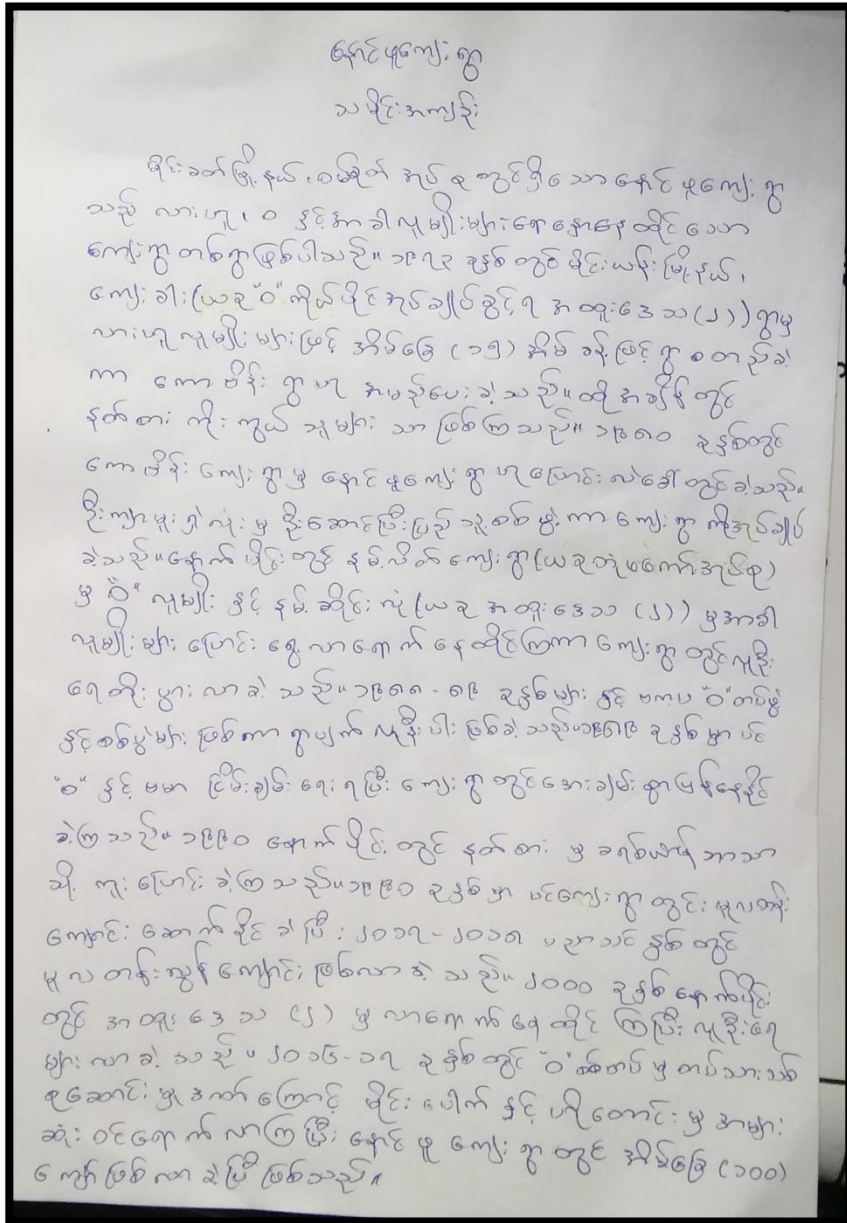 နောင်ဖူကျေးရွာ
သမိုင်းအကျဉ်း
မိုင်းခတ်မြို့နယ်၊ ဝမ်စိုက် အုပ်စုတွင်ရှိသော နောင်ဖူကျေးရွာ
သည် လားဟူ၊ ဝ နှင့်အာခါလူမျိုးများရောနှောနေထိုင်သော
ကျေးရွာတစ်ရွာဖြစ်ပါသည်။ ၁၉၇၃ ခုနှစ်တွင် မိုင်းယန်းမြို့နယ်၊
ကျေးခါး (ယခု "ဝ" ကိုယ်ပိုင်အုပ်ချုပ်ခွင့်ရ အထူးဒေသ (၂)) ရွာမှ
လားဟူလူမျိုးများဖြင့် အိမ်ခြေ (၁၅) အိမ် ခန့်ဖြင့် ရွာစတည်ခဲ့
ကာ ကောဖိန်း ရွာဟု အမည်ပေးခဲ့သည်။ ထိုအချိန်တွင်
နတ်စား ကိုးကွယ်သူများ သာဖြစ်ကြသည်။ ၁၉၈၀ ခုနှစ်တွင်
ကောဖိန်း ကျေးရွာမှ နောင်ဖူကျေးရွာ ဟုပြောင်းလဲခေါ်တွင်ခဲ့သည်။
ဦးကျာမူး ရှဲလုံး မှ ဦးဆောင်ပြီး ပြည်သူ့စစ်ဖွဲ့ကာ ကျေးရွာကိုအုပ်ချုပ်
ခဲ့သည်။ နောက်ပိုင်းတွင် နမ့်လိတ်ကျေးရွာ (ယခု တုံမကော်အုပ်စု)
မှ "ဝ" လူမျိုး နှင့် နမ့်ဆိုင်းလုံ (ယခု အထူးဒေသ (၂)) မှအာခါ
လူမျိုးများ ပြောင်းရွှေ့လာရောက်နေထိုင်ကြကာ ကျေးရွာတွင်လူဦး
ရေတိုးပွားလာခဲ့သည်။ ၁၉၈၈-၈၉ ခုနှစ်များ နှင့် ဗကပ "ဝ"တပ်ဖွဲ့
နှင့်စစ်ပွဲများ ဖြစ်ကာ ရွာပျက်လူနီးပါး ဖြစ်ခဲ့သည်။ ၁၉၈၉ ခုနှစ်မှာပင်
"ဝ" နှင့် ဗမာ ငြိမ်းချမ်းရေးရပြီး ကျေးရွာတွင်အေးချမ်းစွာပြန်နေနိုင်
ခဲ့ကြသည်။ ၁၉၉၀ နောက်ပိုင်းတွင် နတ်စား မှ ခရစ်ယာန်ဘာသာ
သို့ ကူးပြောင်းခဲ့ကြသည်။ ၁၉၉၀ ခုနှစ်မှာ ပင်ကျေးရွာတွင်း မူလတန်း
ကျောင်း ဆောက်နိုင်ခဲ့ပြီး ၊ ၂၀၁၇-၂၀၁၈ ပညာသင်နှစ်တွင်
မူလတန်းလွန်ကျောင်းဖြစ်လာခဲ့သည်။ ၂၀၀၀ ခုနှစ်နောက်ပိုင်း
တွင် အထူးဒေသ (၂) မှ လာရောက်နေထိုင် ကြပြီး လူဦးရေ
များလာခဲ့သည်။ ၂၀၁၆-၁၇ ခုနှစ်တွင် "ဝ"စစ်တပ် မှ တပ်သားသစ်
စုဆောင်းမှုဒဏ်ကြောင့် မိုင်းပေါက် နှင့် ဟိုတောင်းမှ အများ
ဆုံး ဝင်ရောက်လာကြပြီး နောင်ဖူကျေးရွာတွင် အိမ်ခြေ (၁၀၀)
ကျော်ဖြစ်လာခဲ့ပြီ ဖြစ်သည်။